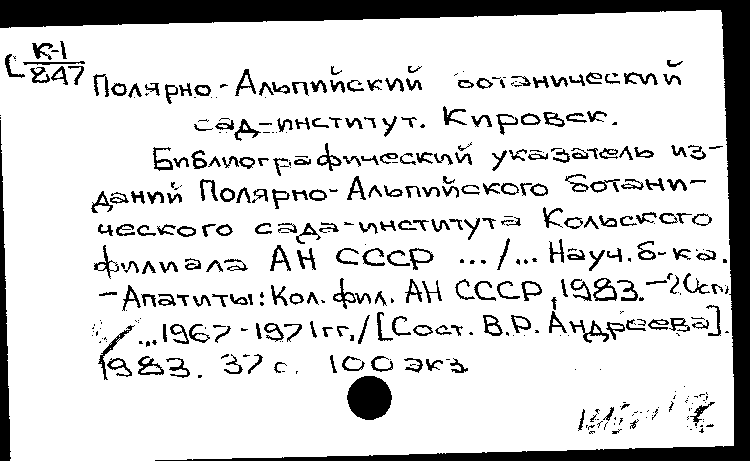 К-1
847
Полярно-Альпийский ботанический
сад-институт. Кировск.
Библиографический указатель из-
даний Полярно-Альпийского ботани-
ческого сада-института Кольского
филиала АН СССР .../... Науч. б-ка.
-Апатиты: Кол. фил. АН СССР, 1983.-20см
...1967-1971гг./[Сост. В.Р. Андреева].
1983. 37 с. 100 экз